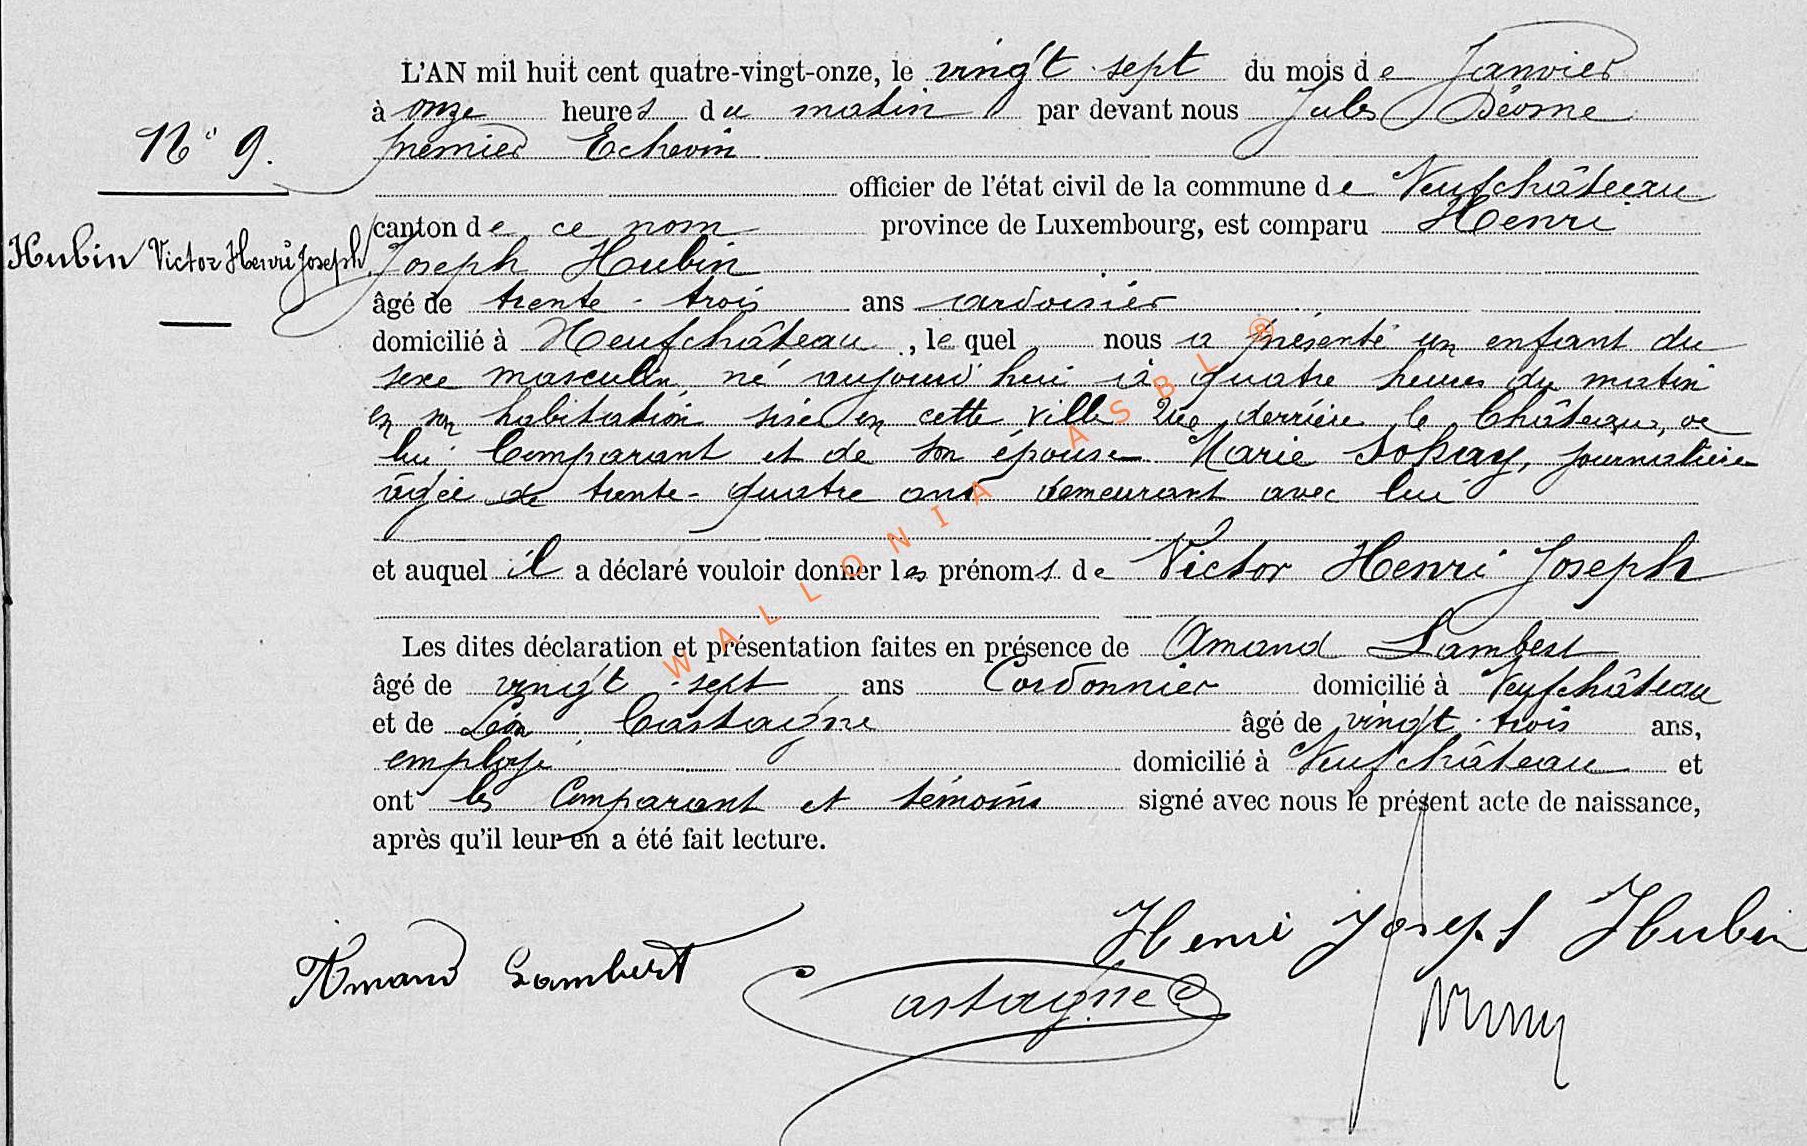 L'AN mil huit cent quatre-vingt-onze, le vingt-sept du mois de Janvier
à onze heures du matin par devant nous Jules
N° 9.
premier Echevin
officier de l'état civil de la commune de Neufchâteau
canton de ce nom province de Luxembourg, est comparu Henri
Hubin Victor Henri Joseph
Joseph Hubin
âgé de trente-trois ans ardoisier
domicilié à Neufchâteau, lequel nous a présenté un enfant du
sexe masculin, né aujourd'hui à quatre heures du matin
en son habitation sise en cette ville rue derrière le Château, de
lui Comparant et de son épouse Marie Sokay, journalière
âgée de trente-quatre ans demeurant avec lui
et auquel il a déclaré vouloir donner les prénoms de Victor Henri Joseph
Les dites déclaration et présentation faites en présence de Amand Lambert
âgé de vingt-sept ans Cordonnier domicilié à Neufchâteau
et de Léon Castaigne âgé de vingt-trois ans,
employé domicilié à Neufchâteau et
ont les Comparant et témoins signé avec nous le présent acte de naissance,
après qu'il leur en a été fait lecture.
Henri Joseph Hubin
Amand Lambert
Castagne
WALLONIA ASBL ®